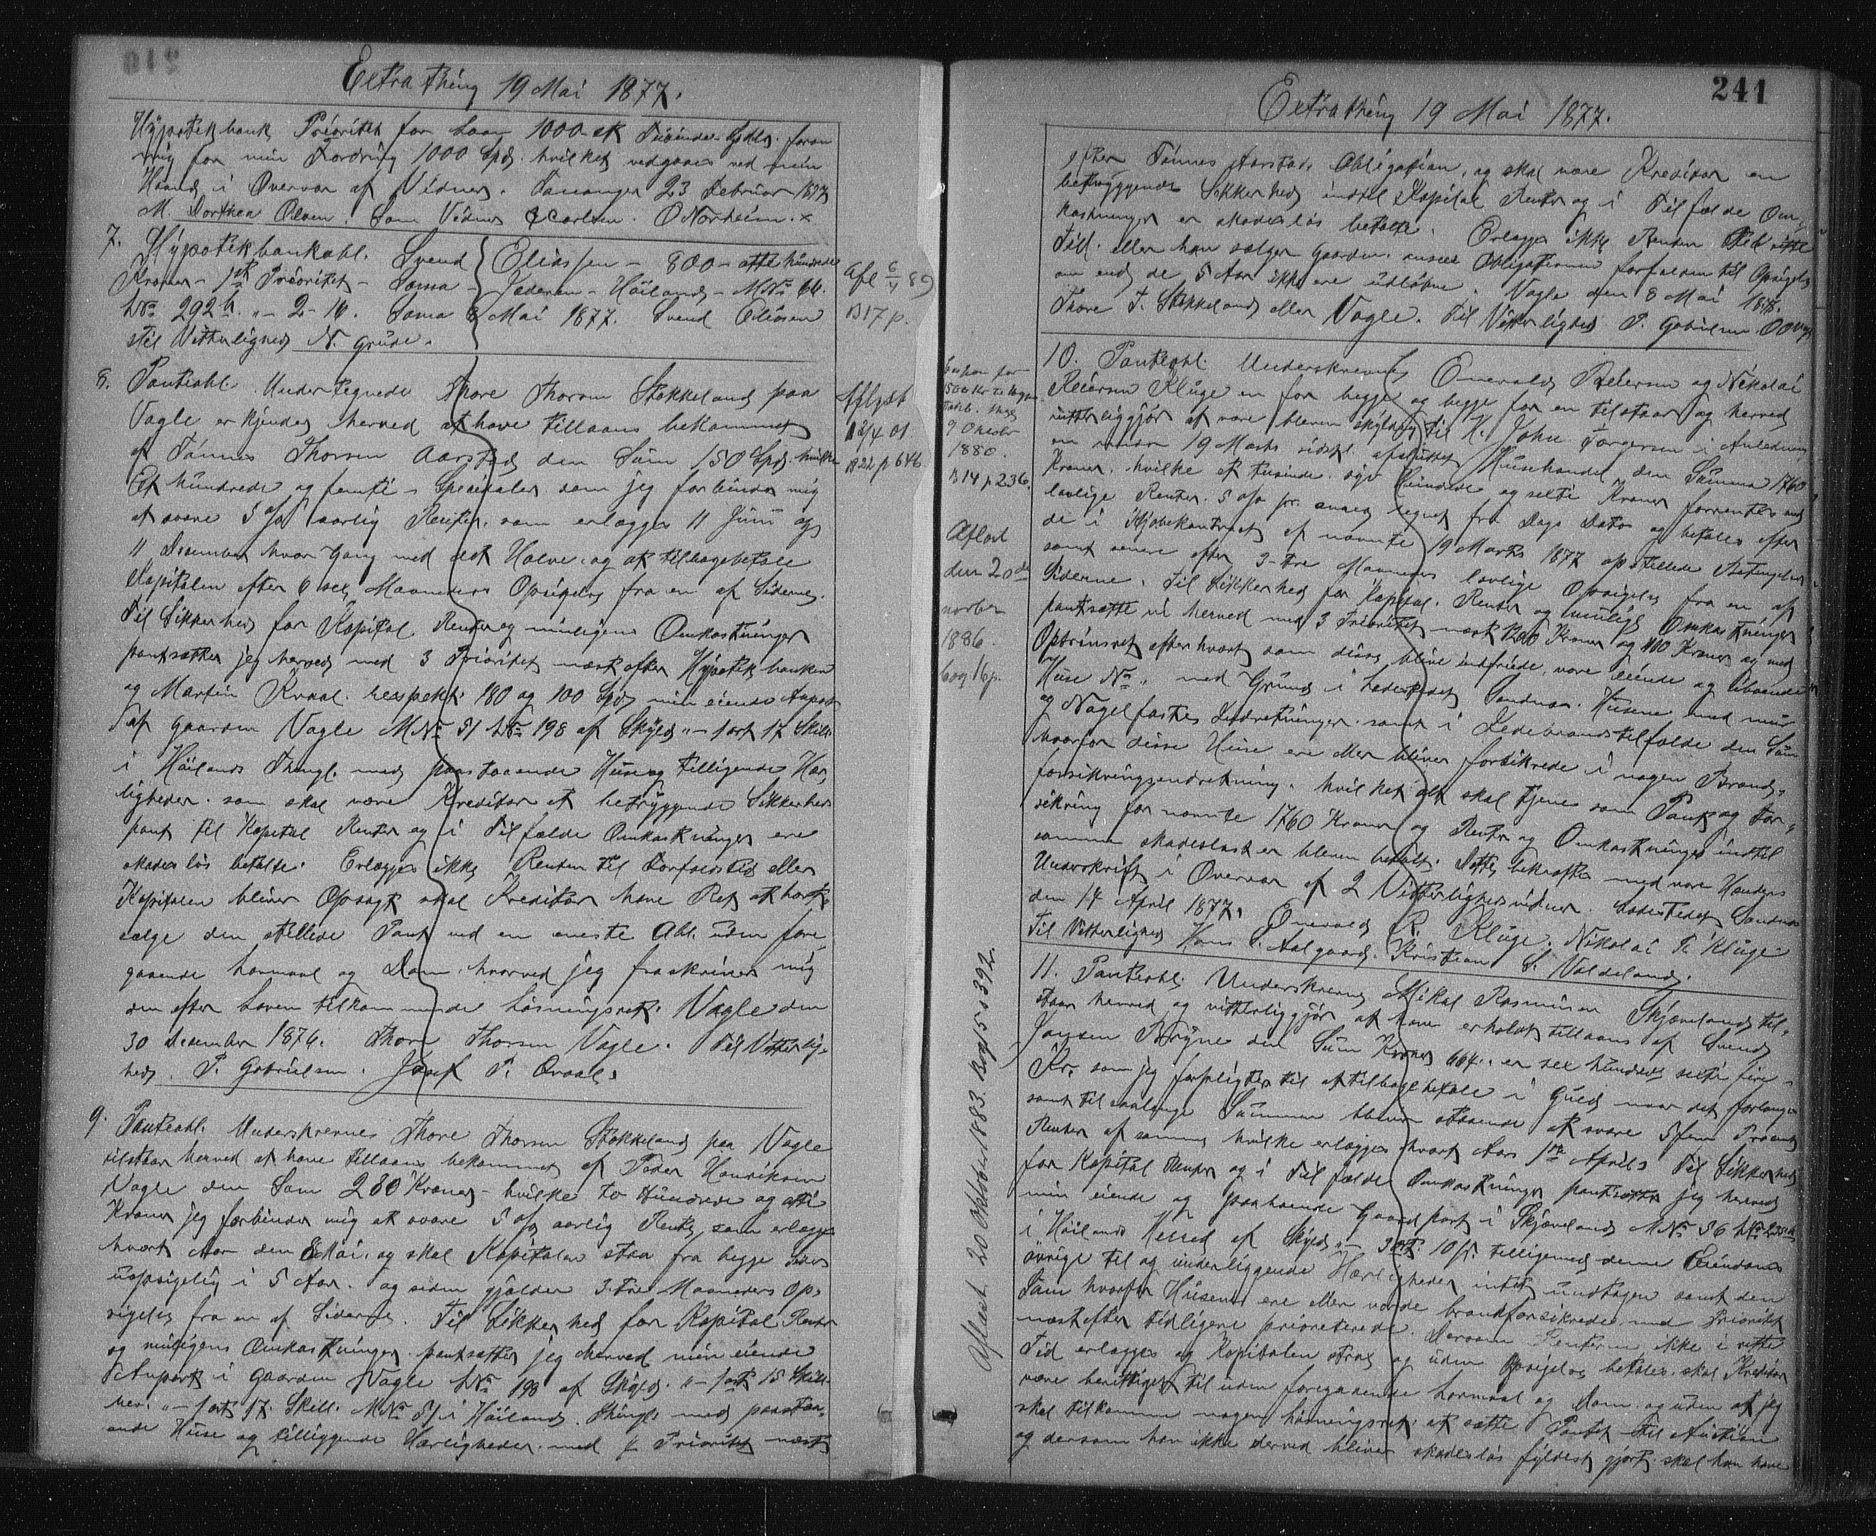 Extrathing 19 Mai 1877.
Hypotekbank Prioritet for Laan 1000 et Tusinde Spdlr. foran
mig for min Fordring 1000 Spd. hvilket vedgaaes ved min
Haand i Overvær af Vidner. Stavanger 23 Februar 1877
M. Dorthea Olsen. Som Vidner Carlsen. O Norheim.
7. Hypotekbankobl. Svend Eliassen - 800 - otte hundrede
Kroner - 1ste Prioritet - Soma - Jæderen - Höiland - M No 66.
L No 292 b. " - 2 - 16. Soma 8 Mai 1877. Svend Eliasen
til Vitterlighed N. Grude.
Afl 6/4 89
B 17 p.
8. Panteobl. Undertegnede Thore Thorsen Stokkeland paa
Vagle erkjender herved at have tillaans bekommet
af Tönnes Thorsen Aarstad den Sum 150 Spd. hvilke
Et hundrede og femti - Specidaler som jeg forbinder mig
at svare 5 o/o aarlig Renter. som erlægges 11 Juni og
11 December hver Gang med det Halve. og at tilbagebetale
Kapitalen efter 6 sex Maaneders Opsigelse fra en af Siderne.
Til Sikkerhed for Kapital Renter og muligens Omkostninger
pantsætter jeg herved med 3 Prioritet næst efter Hypotekbanken
og Martin Kvaal. respekt. 180 og 100 Spd min eiende Anpart
af Gaarden Vagle M No 51 L No 198 af Skyld " - 1 ort 17 Skill.
i Höilands Thingl. med paastaaende Huse og tilligende Her-
ligheder. som skal være Kreditor et betryggende Sikkerheds
pant til Kapital Renter og i Tilfælde Omkostninger ere
skadeslös betalte. Erlægges ikke Renten til Forfaldstid eller
Kapitalen bliver Opsagt skal Kreditor have Ret at bort-
sælge den stillede Pant ved en eneste Auk. uden fore-
gaaende Lovmaal og Dom. hvorved jeg fraskriver mig
den efter Loven tilkommende Lösningsret. Vagle den
30 December 1876. Thore Thorsen Vagle. Til Vitterlig-
hed. T. Gabrielsen. Josef T. Kvaal.
Aflyst
12/4 01
B 22 p 646.
9. Panteobl. Underskrevnes Thore Thorsen Stokkeland paa Vagle
tilstaar herved at have tillaans bekommet af Peder Henriksen
Vagle den Sum 280 Kroner - hvilke to Hundrede og otti
Kroner jeg forbinder mig at svare 5 o/o aarlig Rente som erlægges
hvert Aar den 8 Mai. og skal Kapitalen staa fra begge Sider
uopsigelig i 5 Aar. og siden gjælder 3 tre Maaneders Op-
sigelse fra en af Siderne. Til Sikkerhed for Kapital Renter
og muligens Omkostninger pantsætter jeg herved min eiende
Anpart i Gaarden Vagle L No 198 af Skyld. " - 1 ort 15 Skill.
rev. " - 1 ort 17 Skill. M No 51 i Höilands Thingl. med paastaa-
ende Huse og tilliggende Herligheder. med 4 Prioritet næst
241
Extrathing 19 Mai 1877.
efter Tönnes Aarstads Obligation, og skal være Kreditor en
betryggende Sikkerhed indtil Kapital Renter og i Tilfælde Om-
kostninger er skadeslös betalte. Erlægges ikke Renten til rette
Tid. eller han sælger Gaarden. ansees Obligationen forfalden til Opsigelse
om end de 5 Aar ikke ere udlöbne. Vagle den 8 Mai 1877.
Thore T. Stokkeland eller Vagle. Til Vitterlighed T. Gabrielsen.
10. Panteobl. Underskrevne Omvald Reiersen og Nikolai
Reiersen Kluge en for begge og begge for en tilstaar og herved
vitterliggjör at være bleven skyldig til H. John Torgersen i Anledning
en under 19 Marts sidst. afsluttet Husehandel den Summa 1760
Kroner. hvilke et tusinde syv hundrede og sexti Kroner forrentes med
lovlige Renter 5 o/o pr. anno regnet fra Dags Dato og betales efter
de i Kjöbekontract af nævnte 19 Marts 1877 opstillede Betingelser
samt senere efter 3 - tre Maaneders lovlige Opsigelse fra en af
Siderne. Til Sikkerhed for Kapital. Renter og mulige Omkostninger
pantsætte vi herved med 3 Prioritet næst 1200 Kroner og 400 Kroner og med
Optrinsret efterhvert som disse blive indfriede, vore eiende og iboende
Huse No . med Grund i Ladestedet Sandnes. Husene med mur
og Nagelfaste Indretninger. samt i Ildebrandstilfælde den Sum
hvorfor disse Huse ere eller bliver forsikrede i nogen Brand-
forsikringsindretning. hvilket alt skal tjene som Pant og For-
sikring for nævnte 1760 Kroner og Renter og Omkostninger indtil
samme skadeslöst er bleven betalt. Dette bekræftes med vore Hænders
Underskrift i Overvær af 2 Vitterlighedsvidner. Ladestedet Sandnes
den 14 April 1877. Omvald R. Kluge. Nikolai R. Kluge
Til Vitterlighed Hans L. Aalgaard. Kristian S. Voldeland.
1880.
B 14 p 236.
Aflæst
den 20de
novbr
1886.
bog 16 p.
11. Panteobl. Underskrevne Mikal Rasmusen Skjæveland til-
staar herved og vitterliggjör at have erholdt tillaans af Svend
Jansen Bryne den Sum Kroner 664. er sex hundrede sexti fire -
Kr. som jeg forpligter til at tilbagebetale i Guld naar det forlanges
samt til saalænge Summen bliver staaende at svare 5 fem Procent
Renter af samme hvilke erlægges hvert Aar 1ste April. Til Sikkerhed
for Kapital Renter og i Tilfælde Omkostninger pantsætter jeg herved
min eiende og paaboende Gaardpart i Skjæveland M No 56 L No
i Höilands Herred af Skyld " - 3 ort 10 ß. tilligemed denne Eiendoms
övrige til og underliggende Herligheder intet undtagen samt den
Sum hvorfor Husene ere eller vorde brandforsikrede. med Prioritet
næst efter tidligere prioriterede. Dersom Renterne ikke i rette
Tid erlægges og Kapitalen strax og uden Opsigelse betales. skal Kreditor
være berettiget til uden foregaaende Lovmaal og Dom. og uden at jeg
skal tilkomme nogen Lösningsret. at sætte Pantet til Auction
og dersom han ikke derved bliver skadeslös fyldest gjort. skal han have
Aflæst 20 Oktober 1883. Bog 15 s 392.